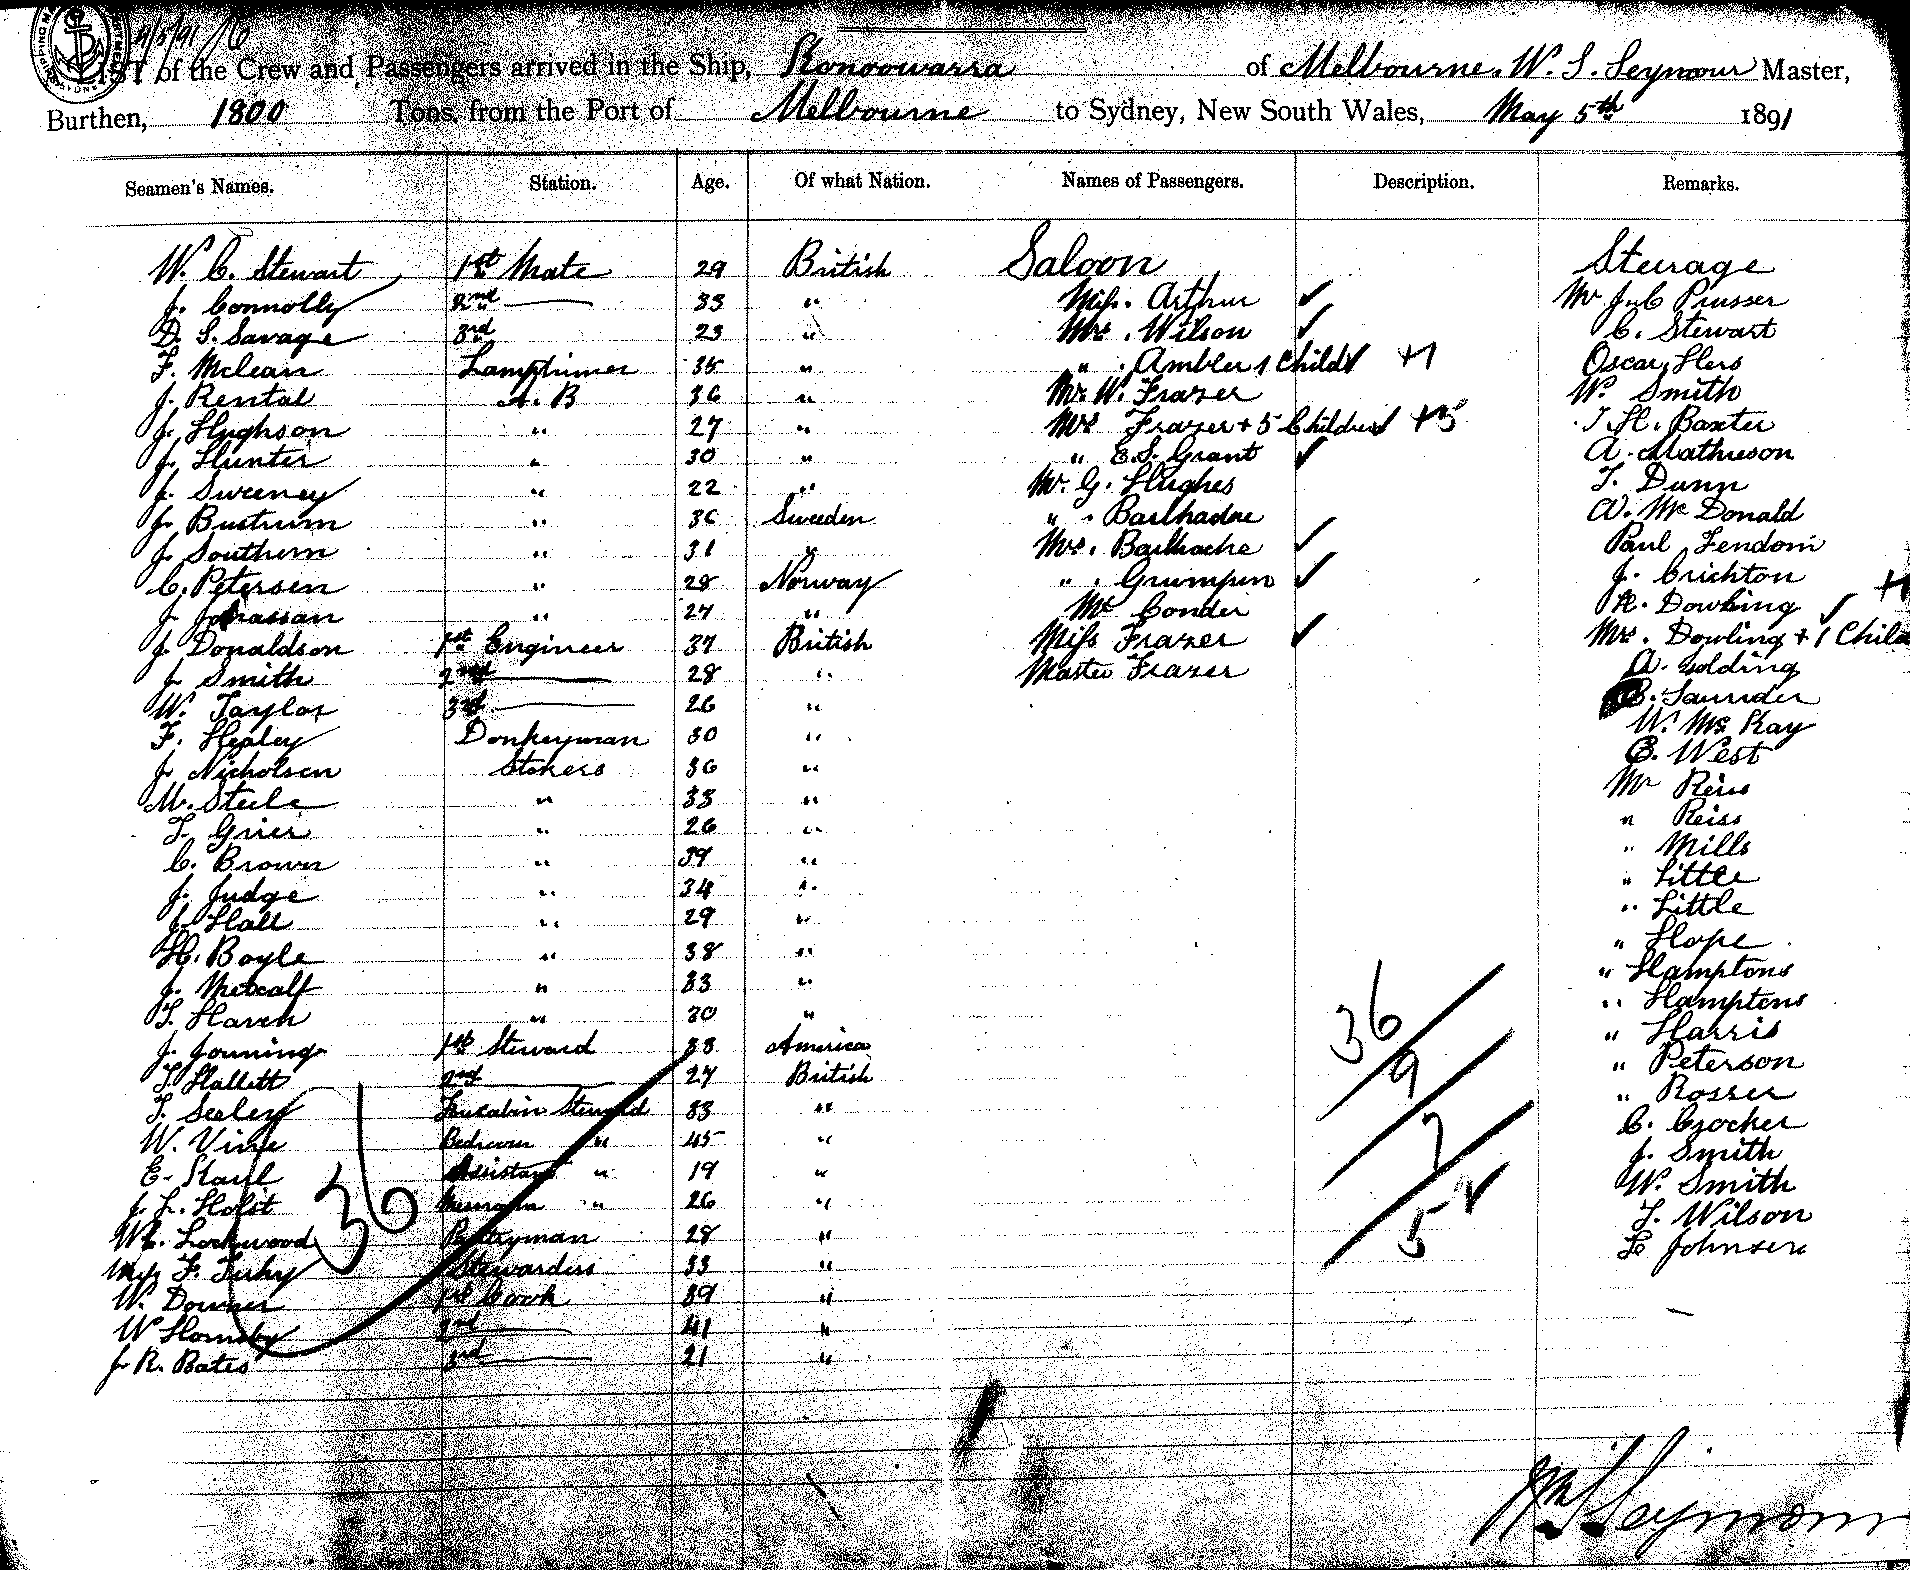 LIST of the Crew and Passengers arrived in the Ship, Konoowarra of Melbourne, W. S. Seymour Master,
Burthen, 1800 Tons, from the Port of Melbourne to Sydney, New South Wales, May 5th 1891
Seamen's Names. Station. Age. Of what Nation. Names of Passengers. Description. Remarks.
W. C. Stewart 1st Mate 29 British Saloon Steerage
J. Connolly 2nd 33 " Miss. Arthur ✓ Mr J. C Prusser
D. S. Savage 3rd 23 " Mrs. Wilson ✓ C. Stewart
F. Mclean Lamptrimer 35 " " Ambler 1 Child ✓ +1 Oscar Hers
J. Rental A. B 36 " Mr. W. Frazer W. Smith
J. Hughson " 27 " Mrs Frazer + 5 Children ✓ +5 T. H. Baxter
J. Hunter " 30 " " E. S. Grant ✓ A. Mathieson
J. Sweeney " 22 " Mr. G. Hughes T. Dunn
J. Bustrum " 36 Sweden " A. Mc Donald
J. Southern " 31 " Mrs. Bailhache ✓ Paul Fendom
C. Petersen " 28 Norway " Grumpen ✓ J. Crichton
J. " 27 " Mr Conder R. Dowling ✓ +1
J. Donaldson 1st Engineer 37 British Miss Frazer ✓ Mrs. Dowling + 1 Child
J. Smith 2nd 28 " Master Frazer A. Golding
W. Taylor 3rd 26 " Saunder
F. Healey Donkeyman 30 " W. Mc Kay
J. Nicholson Stokers 36 " C. West
M. Steele " 33 " Mr Reiss
T. Grier " 26 " " Reiss
C. Brown " 39 " " Mills
J. Judge " 34 " " Little
J. Hall " 29 " " Little
H. Boyle " 38 " " Hope
J. Metcalf " 33 " " Hamptons
T. Haven " 30 " " Hamptons
J. Jonning 1st Steward 33 America " Harris
T. Hallett 2nd 27 British " Peterson
T. Seeley Forecabin Steward 33 " " Rosser
W. Vine Bedroom " 45 " C. Crocker
E. Assistant " 19 " J. Smith
J. L. Holst Messroom " 26 " W. Smith
W. C. Lockwood Pantryman 28 " T. Wilson
Mrs F. Stewardess 33 " L Johnsen
W. Downer 1st Cook 39 "
W Hornsby 2nd 41 "
J. R. Bates 3rd 21 "
36
36
9
7
5
W. S. Seymour